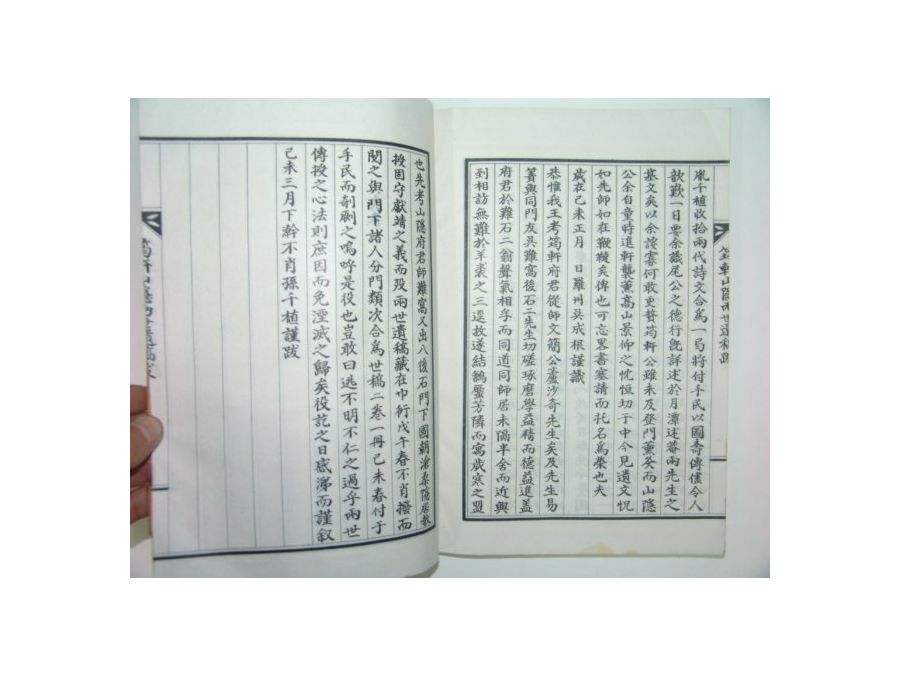 胤千植收拾兩代詩文合爲一局將付手民以圖壽傳僅令人
歆歎一日要余識尾公之德行旣詳述於月潭述菴兩先生之
墓文矣以余謏寡何敢更贅筠軒公雖未及登門薰炙而山隱
公余自童時進軒襲薰高山景仰之忱恒切于中今見遺文怳
如先師如在鞭韃矣傳也可忘畧書塞請而托名爲榮也夫
歲在己未正月 日羅州吳成根謹識
恭惟我王考筠軒府君從師文簡公蘆沙奇先生矣及先生易
簀與同門友吳難窩後石二先生切磋琢磨學益精而德益進蓋
府君於難石二翁聲氣相孚而同道同師居未隔半舍而近興
到相訪無難於羊裘之三逕故遂結鶼蟨芳隣而寓歲寒之盟
筠軒山隱兩世遺稿跋
也先考山隱府君師難窩又出入後石門下國朝滄桑隱居敎
授固守獻靖之義而歿兩世遺稿藏在巾衍戊午春不肖撥而
閱之與門下諸人分門類次合爲世稿二卷一冊己未春付于
手民而剞劂之嗚呼是役也豈敢曰逃不明不仁之過乎兩世
傳授之心法則庶因而免湮滅之歸矣役訖之日感涕而謹叙
己未三月下幹不肖孫千植謹跋